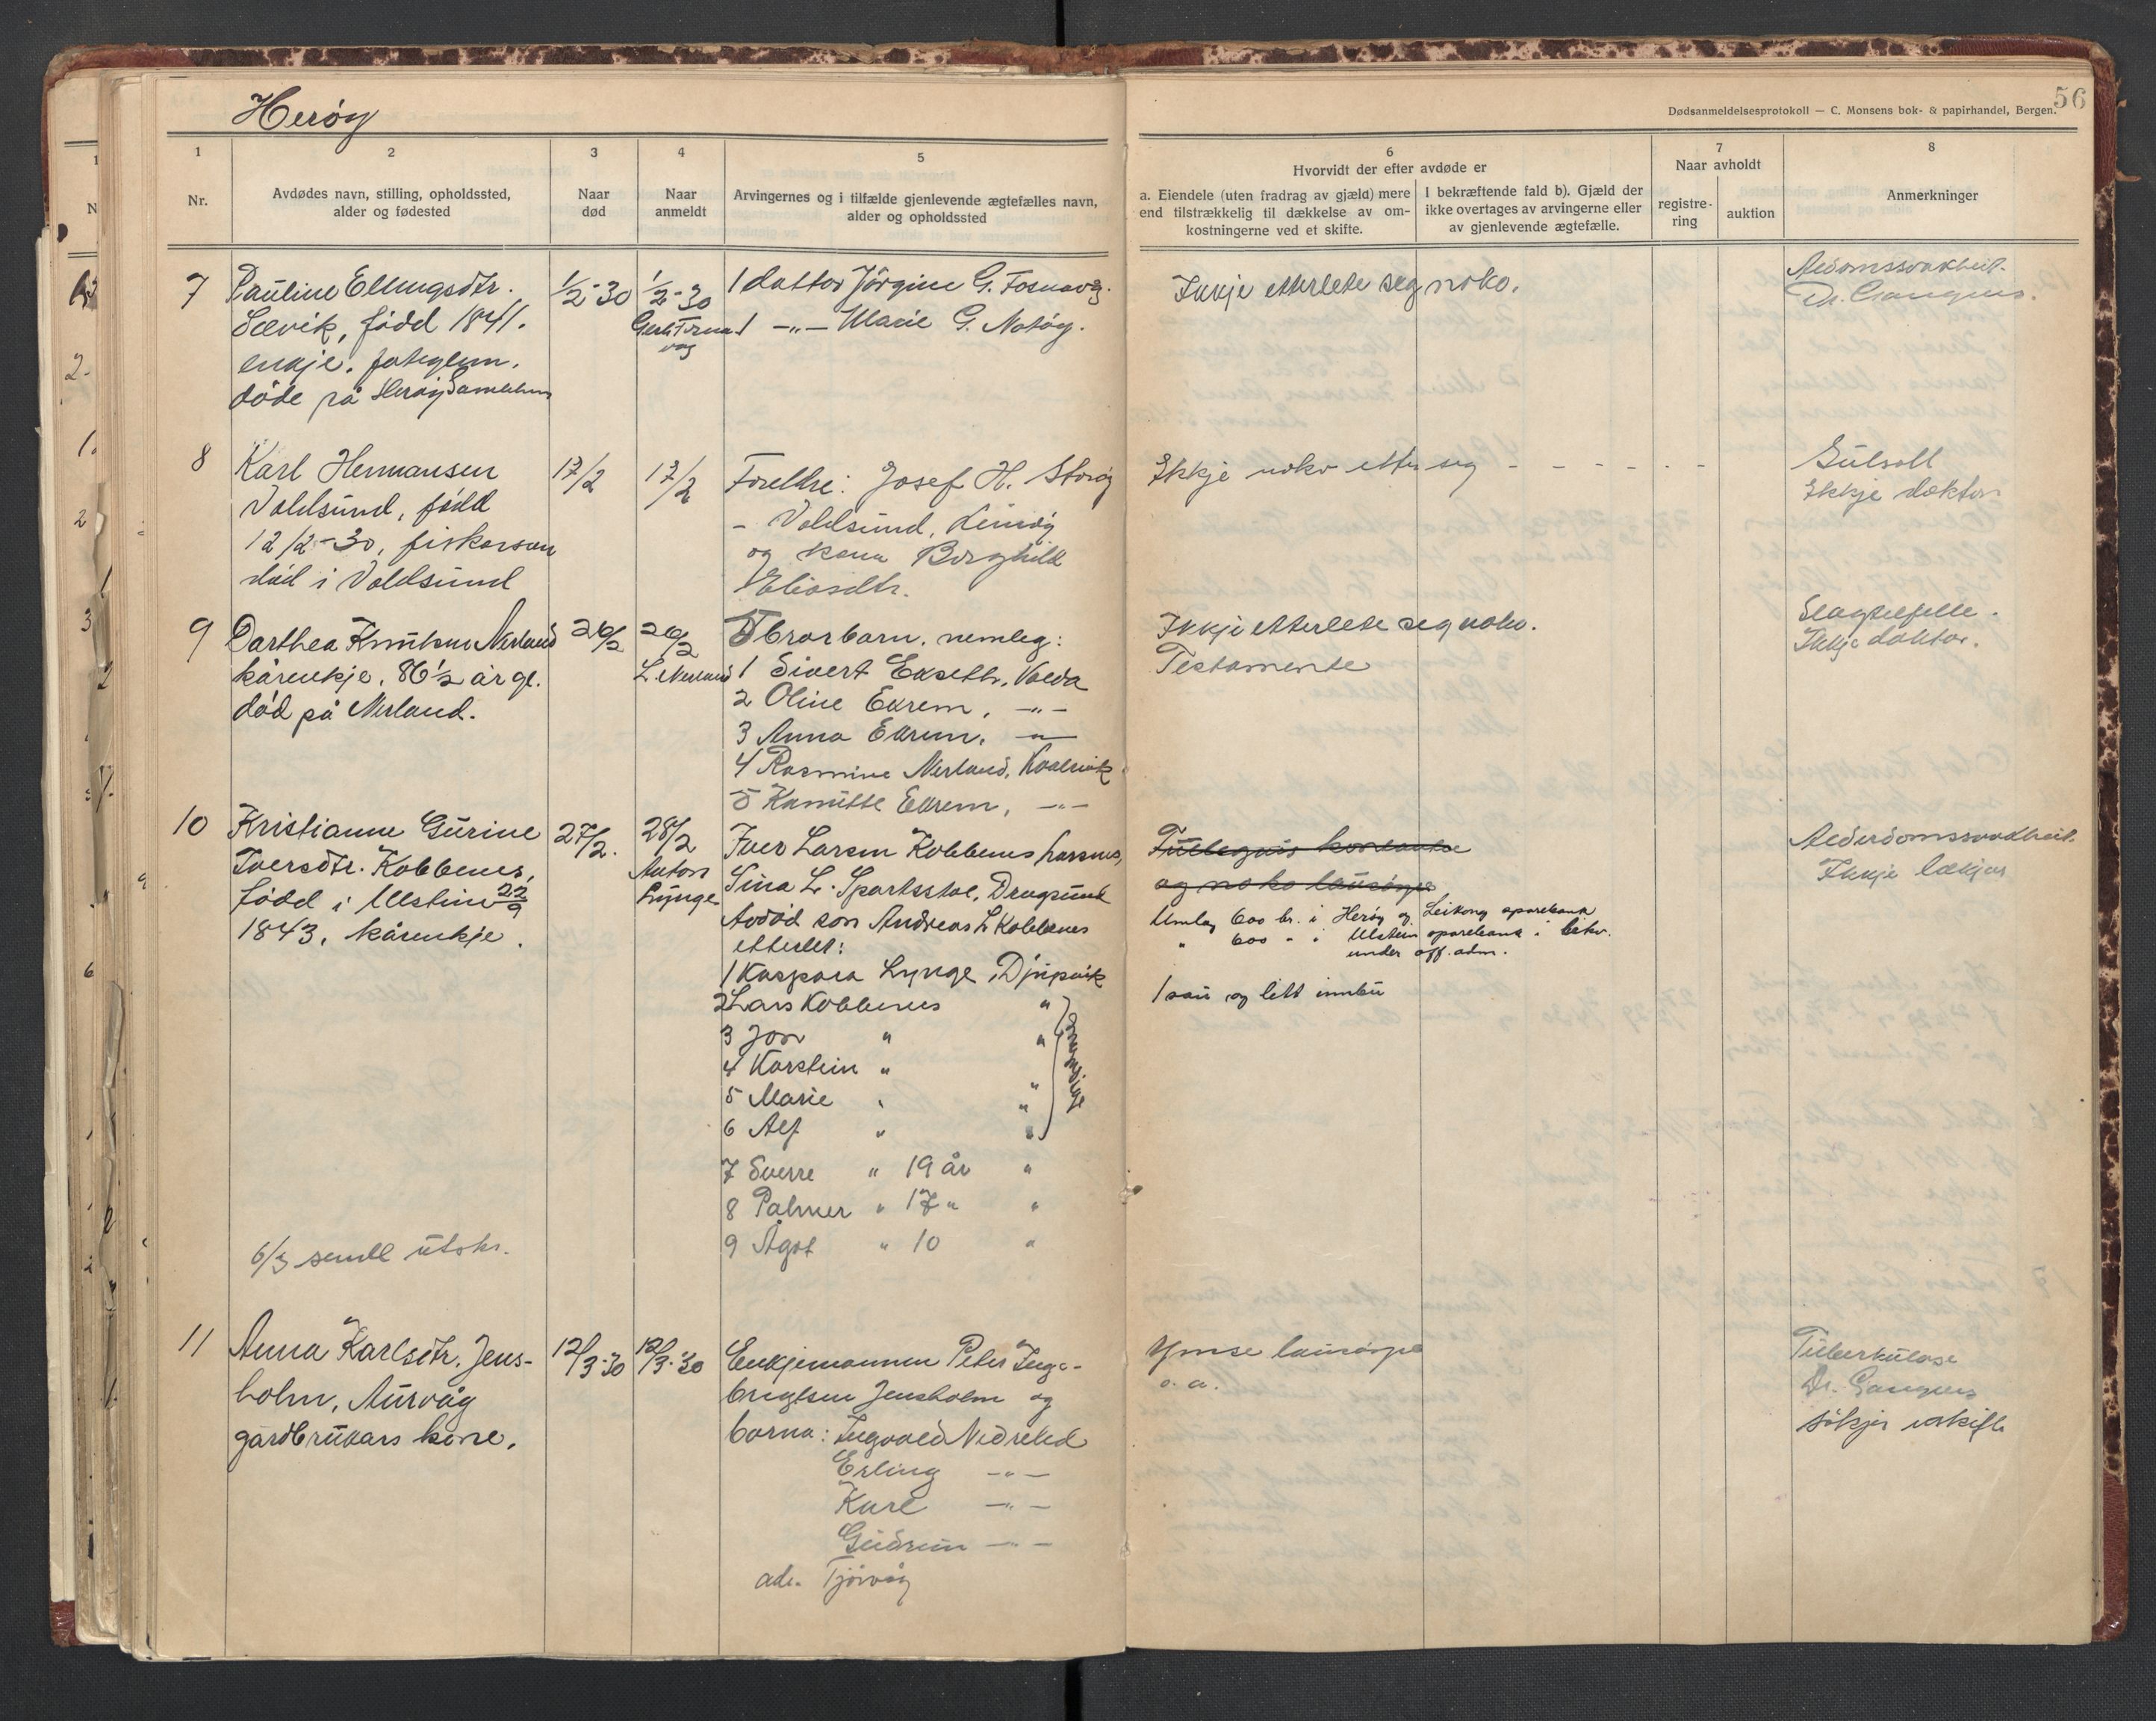 Herøy
56
Dødsanmeldelsesprotokoll — C. Monsens bok- & papirhandel, Bergen.
1
Nr.
2
Avdødes navn, stilling, opholdssted,
alder og fødested
3
Naar
død
4
Naar
anmeldt
5
Arvingernes og i tilfælde gjenlevende ægtefælles navn,
alder og opholdssted
6
Hvorvidt der efter avdøde er
a. Eiendele (uten fradrag av gjæld) mere
end tilstrækkelig til dækkelse av om-
kostningerne ved et skifte.
I bekræftende fald b). Gjæld der
ikke overtages av arvingerne eller
av gjenlevende ægtefælle.
7
Naar avholdt
registre-
ring
auktion
8
Anmerkninger
7
Pauline Ellingsdtr.
Sævik, fødd 1841.
enkje. fateglem.
døde på Herøy Gamleheim
1/2-30
1/2-30
1 dotter Jørgine G. Fosnavåg.
1 -"- Marie G. Notøy.
Ikkje etterlete seg noko.
8
Karl Hermansen
Voldsund, fødd
12/2-30, fiskarson
død i Voldsund
17/2
17/2
Foreldre: Josef H. Storøy
- Voldsund, Leinøy
og kona Borghild
Eliasdtr.
Ikkje noko etter seg - - - - - -
Ikkje doktor
9
Darthea Knutsen Nerland
kårenkje, 86½ år gl.
død på Nerland.
26/2
26/2
L. Nerland
5 brorborn, nemleg:
1 Sivert Ekseth, Volda
2 Oline Ekrem, -"-
3 Anna Ekrem, -"-
4 Rasmine Nerland, Kvalsvik
5 Kamilla Ekrem, -"-
Ikkje etterlete seg noko.
Testamente
Slagtilfelle.
Ikkje doktor.
10
Kristianne Gurine
Iversdtr. Kobbenes,
fødd i Ulstein 22/9
1843, kårenkje.
6/3 sendt utskr.
27/2.
28/2
Anton
Lynge
Iver Larsen Kobbenes,
Sina L. Sparsstøl, Dragsund
Avdød son Andreas L Kobbenes
etterlet:
1 Kaspara Lynge, Djupvik
2 Lars Kobbenes "
3 Jon " "
4 Karstein " "
5 Marie " "
6 Alf " "
7 Sverre " 19 år "
8 Palmer " 17 " "
9 Ågot " 10 "
og noko lausøyre
Umlag 600 kr. i Herøy og Leikong sparebank
" 600 - i Ulstein sparebank i likv.
under off. adm.
1 sau og litt innbu
Alderdomssvakheit.
Ikkje lækjar
11
Anna Karlsdtr. Jens-
holm, Aurvåg
gardbrukars kone.
12/3-30
12/3-30
Enkjemannen Peter Inge-
brigtsen Jensholm og
borna: Ingvald Nedreled
Erling -"-
Karl -"-
Gudrun -"-
adr. Tjørvåg
Ymse lausøyre
o. a.
Tuberkulose
Dr. Gangnes
søkjer uskifte